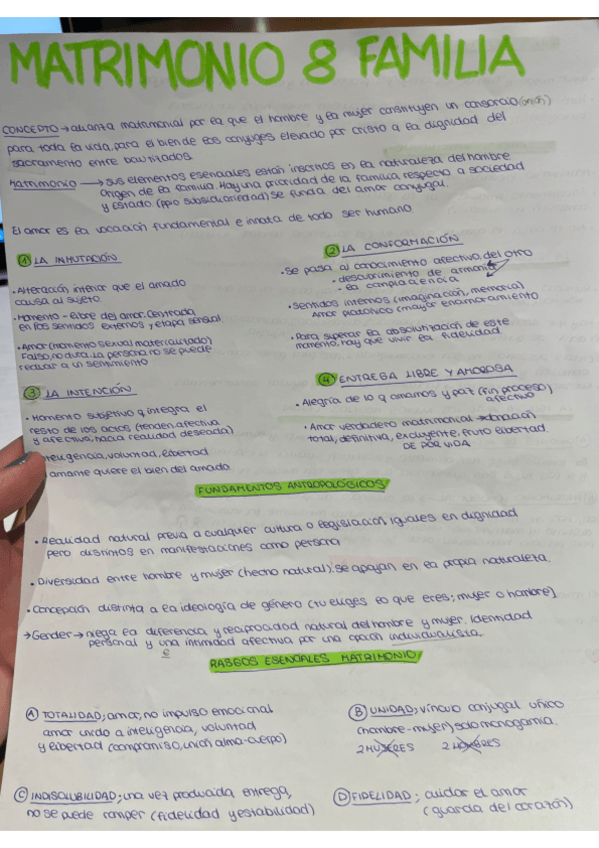 MATRIMONIO & FAMILIA
CONCEPTO → alianza matrimonial por la que el hombre y la mujer constituyen un consorcio (unión)
para toda la vida, para el bien de los conyuges elevado por Cristo a la dignidad del
sacramento entre bautizados.
Matrimonio → sus elementos esenciales están inscritos en la naturaleza del hombre
Origen de la familia. Hay una prioridad de la familia respecto a sociedad
y Estado (ppio subsidiariedad) se funda del amor conyugal.
El amor es la vocación fundamental e innata de todo ser humano
① LA INMUTACIÓN
• Alteración interior que el amado
causa al sujeto.
• Momento - eibre del amor. Centrada
en los sentidos externos y etapa sensual.
• Amor (momento sexual materializado)
Falso, no dura. La persona no se puede
reducir a un sentimiento
② LA CONFORMACIÓN
• Se pasa al conocimiento afectivo del otro
- descubrimiento de armonía
- la complacencia
• Sentidos internos (imaginación, memoria)
Amor platónico (mayor enamoramiento
• Para superar la absolutización de este
momento, hay que vivir la fidelidad
③ LA INTENCIÓN
• Momento subjetivo q integra el
resto de los actos (tenden. afectiva
y afectiva, hacia realidad deseada)
inteligencia, voluntad, libertad
amante quiere el bien del amado
④ ENTREGA LIBRE Y AMOROSA
• Alegría de lo q amamos y paz (fin proceso)
afectivo
• Amor verdadero matrimonial → donación
total, definitiva, excluyente, fruto libertad.
DE POR VIDA
FUNDAMENTOS ANTROPOLÓGICOS
• Realidad natural previa a cualquier cultura o legislación. Iguales en dignidad
pero distintos en manifestaciones como persona
• Diversidad entre hombre y mujer (hecho natural). Se apoyan en la propia naturaleza.
• Concepción distinta a la ideología de género (tu eliges lo que eres; mujer o hombre)
→ Gender → niega la diferencia y reciprocidad natural del hombre y mujer. Identidad
personal y una intimidad afectiva por una opción individualista.
RASGOS ESENCIALES MATRIMONIO
Ⓐ TOTALIDAD; amor, no impulso emocional
amor unido a inteligencia, voluntad
y libertad (compromiso, unión alma-cuerpo)
Ⓑ UNIDAD; vínculo conyugal único
(hombre-mujer) solo monogamia.
2 MUJERES 2 HOMBRES
Ⓒ INDISOLUBILIDAD; una vez producida entrega,
no se puede romper (fidelidad y estabilidad)
Ⓓ FIDELIDAD; cuidar el amor
(guarda del corazón)